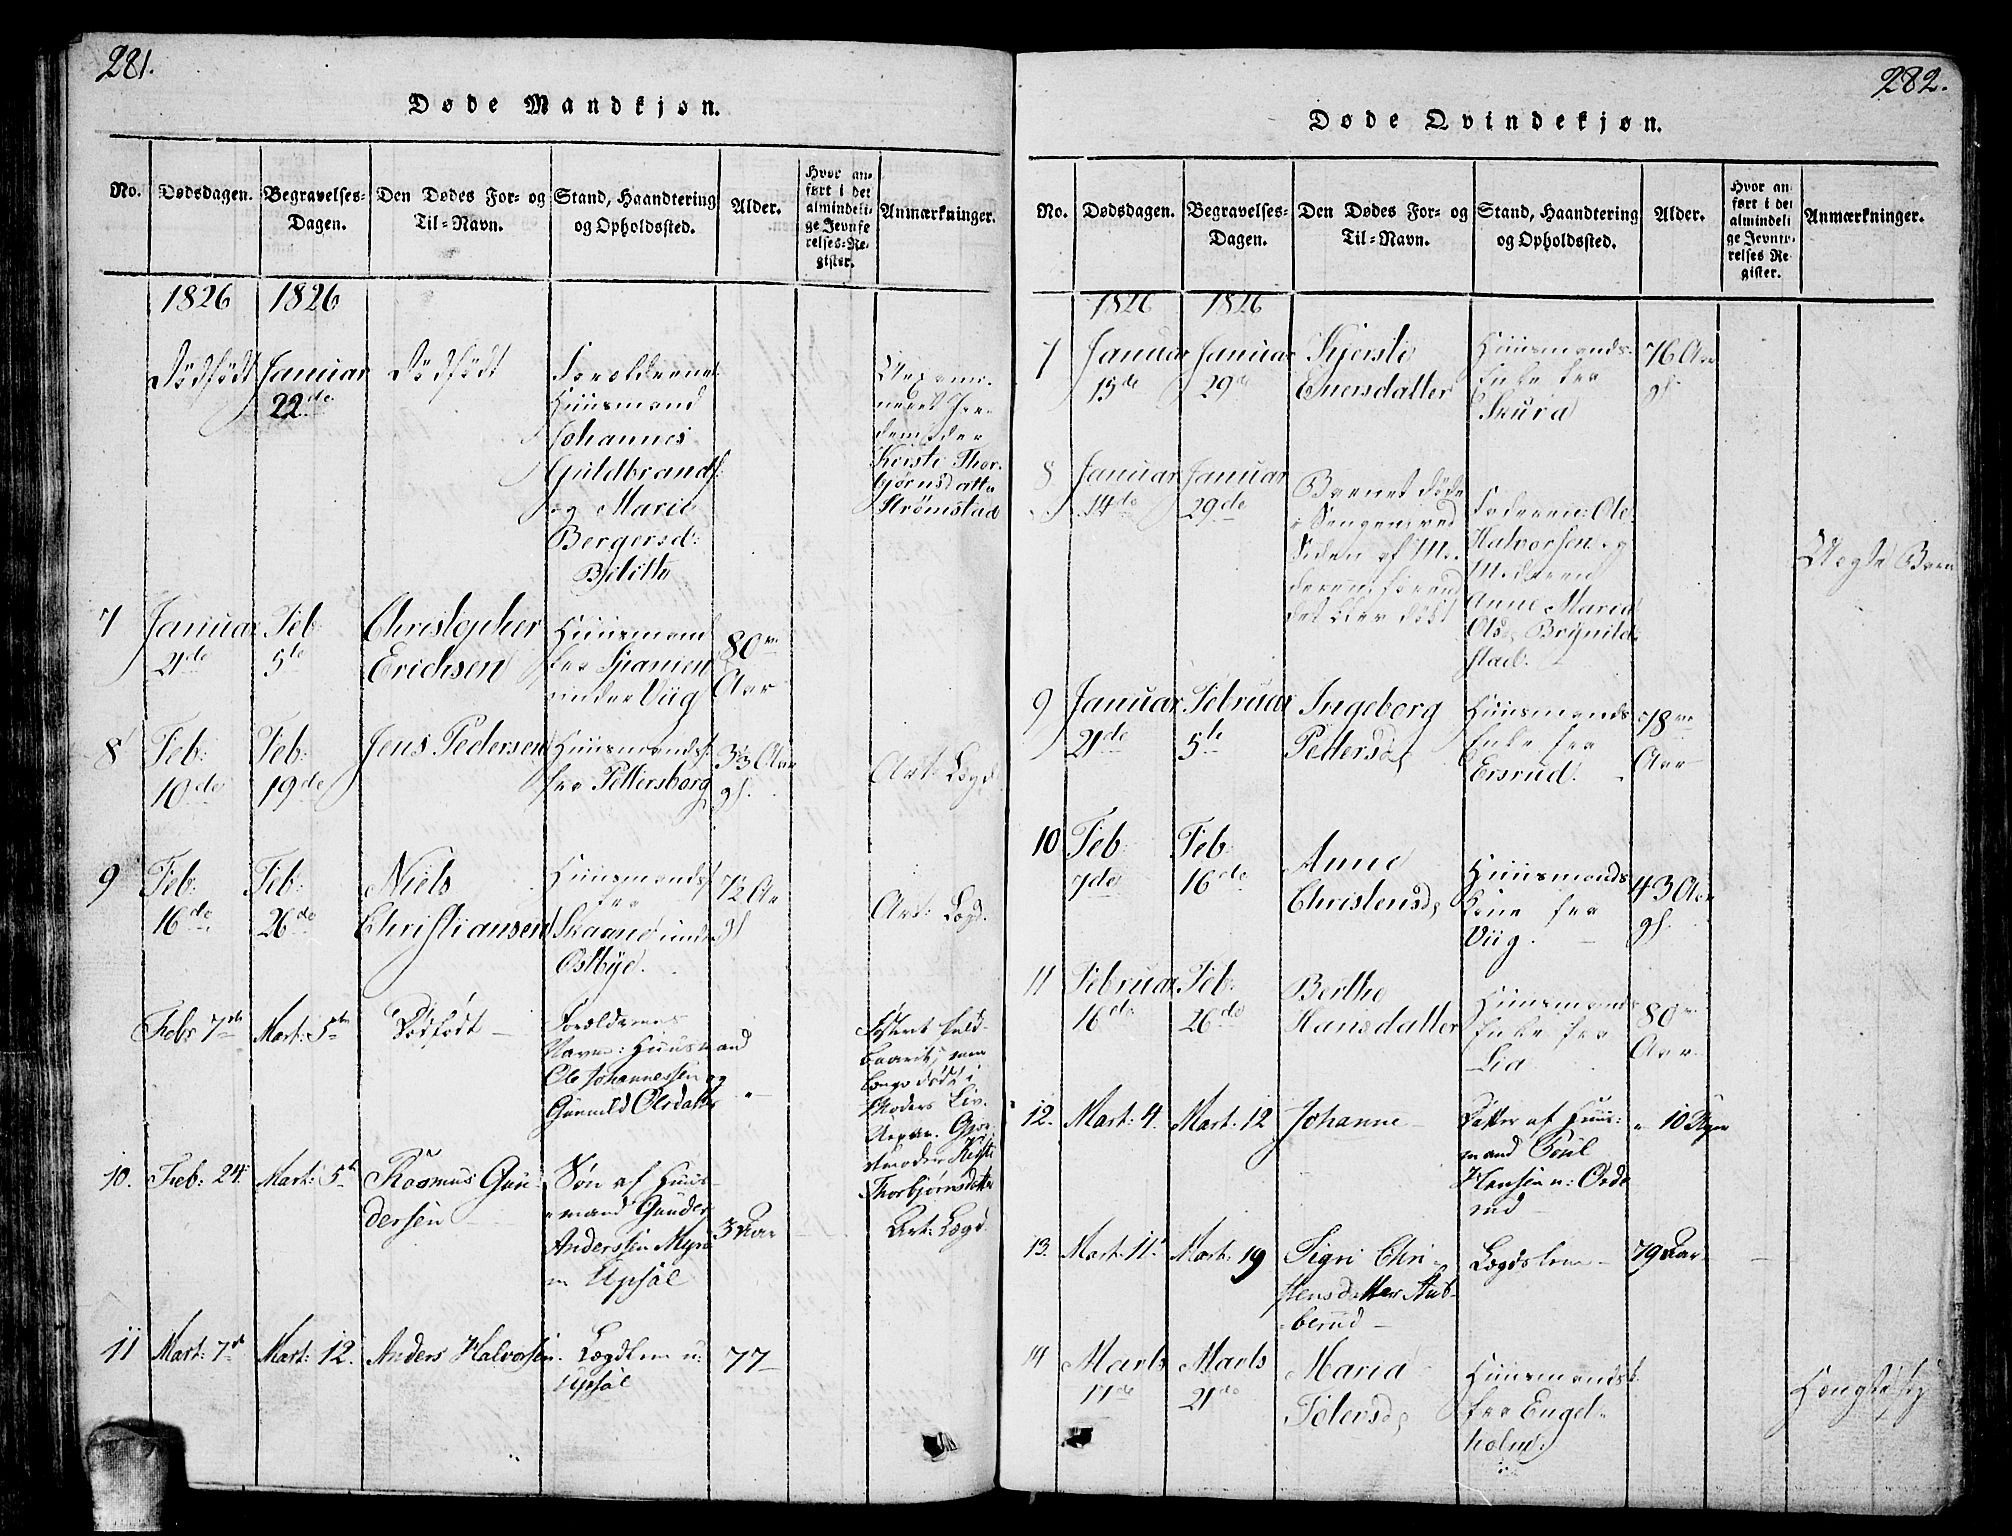 281.
Døde Mandkjøn.
No.
Dødsdagen.
Begravelses-
Dagen.
Den Dødes For- og
Til-Navn.
Stand, Haandtering
og Opholdssted.
Alder.
Hvor an-
ført i det
almindeli-
ge Jevnfø
relses-Re-
gister.
Anmærkninger.
1826
1826
Dödfödt
Januar
22de
Dödfödt
Forældrene
Huusmand
Johannes
Guldbrands:
og Marie
Bergersd:
Kersti Thor-
bjørnsdatter
Strømstad
7
Januar
21de
Feb
5te
Christopher
Erichsen
Huusmand
fra Spanien
under Viig
80
Aar
8
Feb:
10de
Feb:
19de
Jens Pedersen
Huusmands
fra Pettersborg
33 Aar
gl.
Art: Lægd
9
Feb:
16de
Feb:
26de
Niels
Christiansen
Huusmands
fra
Skaane under
Östbye.
72 Aar
gl
Art: Lægd.
Feb: 7de
Mart: 5te
Dödfödt
Forældrenes
Navne: Huusmand
Ole Johannessen og
Gunnild Olsdatter
"
Moders Liv.
Kersti
Thorbjørnsdatter
10.
Feb: 24
Mart: 5te
Rasmus Gun-
dersen
Søn af Huus-
mand Gunder
Anderssen Myra
Upsal
3 Aar
Art: Lægd.
11
Mart: 7de
Mart: 12.
Anders Halvorsen
Lægdlem u:
Upsal
77
282.
Døde Qvindekjøn.
No.
Dødsdagen.
Begravelses-
Dagen.
Den Dødes For- og
Til-Navn.
Stand, Haandtering
og Opholdssted.
Alder.
Hvor an-
ført i det
almindeli-
ge Jevnfø-
relses Re-
gister.
Anmærkninger.
1826
1826
7
Januar
15de
Januar
29de
Kjersti
Enersdatter
Huusmands-
Enke fra
Skura
76 Aar
gl.
8
Januar
14de
Januar
29de
Barnet døde
i Sengen ved
Siden af Mo-
deren, forend
det blev døbt
Faderen: Ole
Halvorsen og
Moderen
Anne Maria
Olsd. Brynild-
stad.
Uægte Barn
9
Januar
21de
Februar
5te
Ingeborg
Pedersd
Huusmands
Enke fra
Ersrud.
78
Aar
10
Feb:
7de
Feb:
16de
Anne
Christensd
Huusmands
Kone fra
Viig.
43 Aar
gl.
11
Februar
16de
Feb:
26de
Berthe
Hansdatter
Huusmands
Enke fra
Lia
80
Aar
12.
Mart: 4.
Mart: 12
Johanne
Datter af Huus-
mand Poul
Hansen
" 10 Uger
13.
Mart: 11
Mart: 19
Sigri Chri-
stensdatter
berud
Lægdslem
79 Aar
14
Marts
17de
Marts
21de
Maria
Huusmands
fra Engel-
holm.